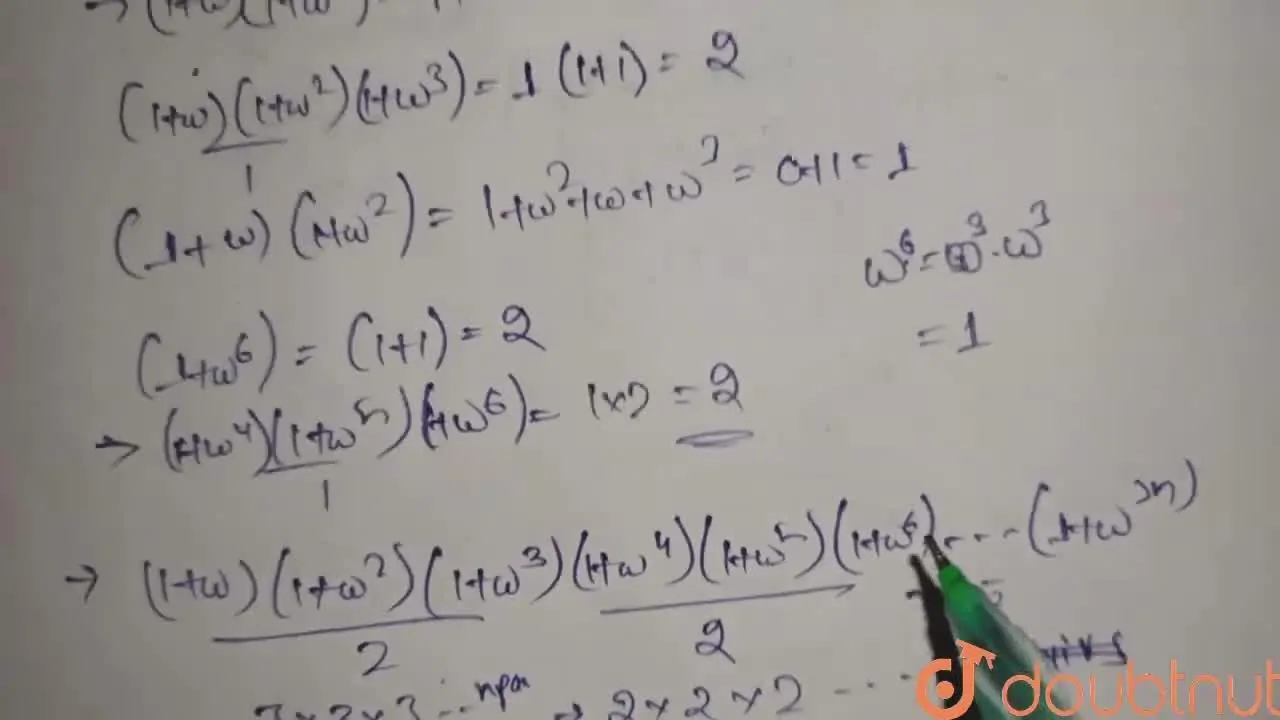 (1+ω)(1+ω²)(1+ω³) = 1 (1+1) = 2
1
(1+ω)(1+ω²) = 1+ω²+ω+ω³ = 0+1 = 1
ω⁶ = ω³·ω³
= 1
(1+ω⁶) = (1+1) = 2
→ (1+ω⁴)(1+ω⁵)(1+ω⁶) = 1×2 = 2
1
→ (1+ω)(1+ω²)(1+ω³)(1+ω⁴)(1+ω⁵)(1+ω⁶)....(1+ω³ⁿ)
2 2
→ 2×2×2 ....
doubtnut